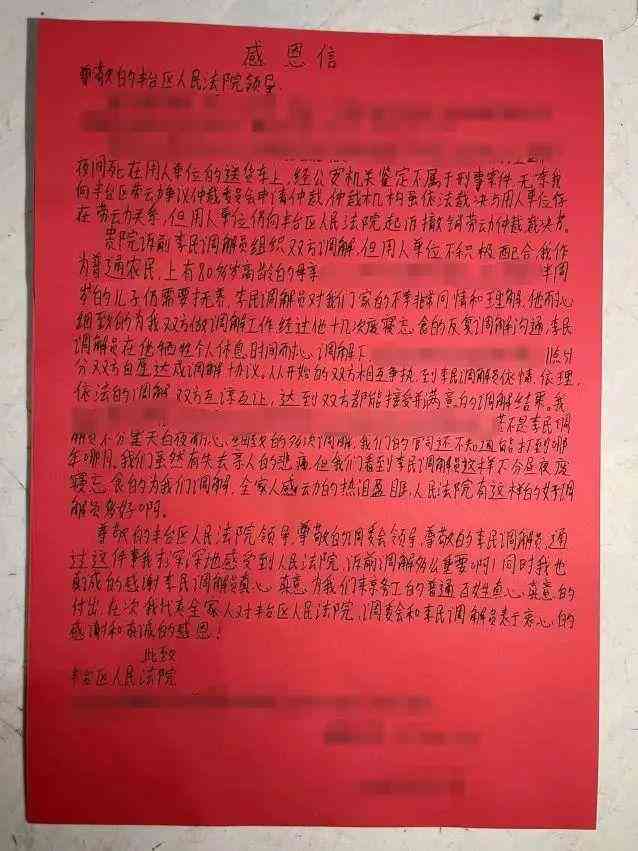 感恩信
尊敬的丰台区人民法院领导
夜间死在用人单位的送货车上,经公安机关鉴定不属于刑事案件,无奈我
向丰台区劳动争议仲裁委员会申请仲裁,仲裁机构虽依法裁决与用人单位存
在劳动关系,但用人单位仍向丰台区人民法院起诉撤销劳动仲裁裁决书。
贵院诉前李民调解员组织双方调解,但用人单位不积极配合,我作
为普通农民,上有80多岁高龄的母亲 半周
岁的儿子仍需要抚养,李民调解员对我们家的不幸非常同情和理解,他耐心
细致的为我双方做调解工作,经过他十几次废寝忘食的反复调解沟通,李民
调解员在他牺牲个人休息时间耐心调解下 11点51
分双方自愿达成调解协议。从开始的双方相互争执,到李民调解员依情、依理、
依法的调解,双方互谅互让,达到双方都能接受和满意的调解结果。我
若不是李民调
解员不分星天白夜耐心 的多次调解,我们的官司还不知道能打到哪
年哪月。我们虽然有失去亲人的悲痛,但我们看到李民调解员这样不分昼夜废
寝忘食的为我们调解,全家人感动的热泪盈眶,人民法院有这样的好调
解员真好啊。
尊敬的丰台区人民法院领导,尊敬的调委会领导,尊敬的李民调解员,通
过这件事我才深深地感受到人民法院,诉前调解多么重要啊!同时我也
真诚的感谢李民调解员真心真意为我们来京务工的普通百姓真心真意的
付出,在次我代表全家人对丰台区人民法院,调委会和李民调解员表示衷心的
感谢和真诚的感恩!
此致
丰台区人民法院